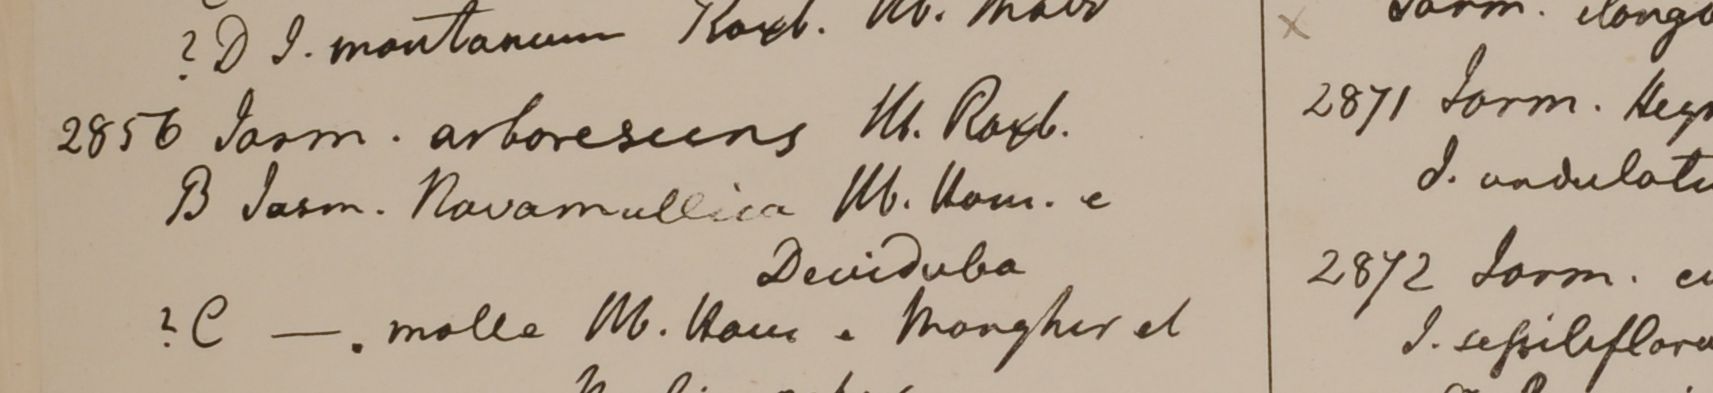 ? D J. montanum Roxb. Hb. Madr
2856 Jasm. arborescens Hb. Roxb.
B Jasm. Navamullica Hb. Ham. e
Deviduba
? C —. molle Hb. Ham e Monghir et
Jasm. elonga
2871 Jasm. Heyn
J. undulatu
2872 Jasm.
J. sessilifloru